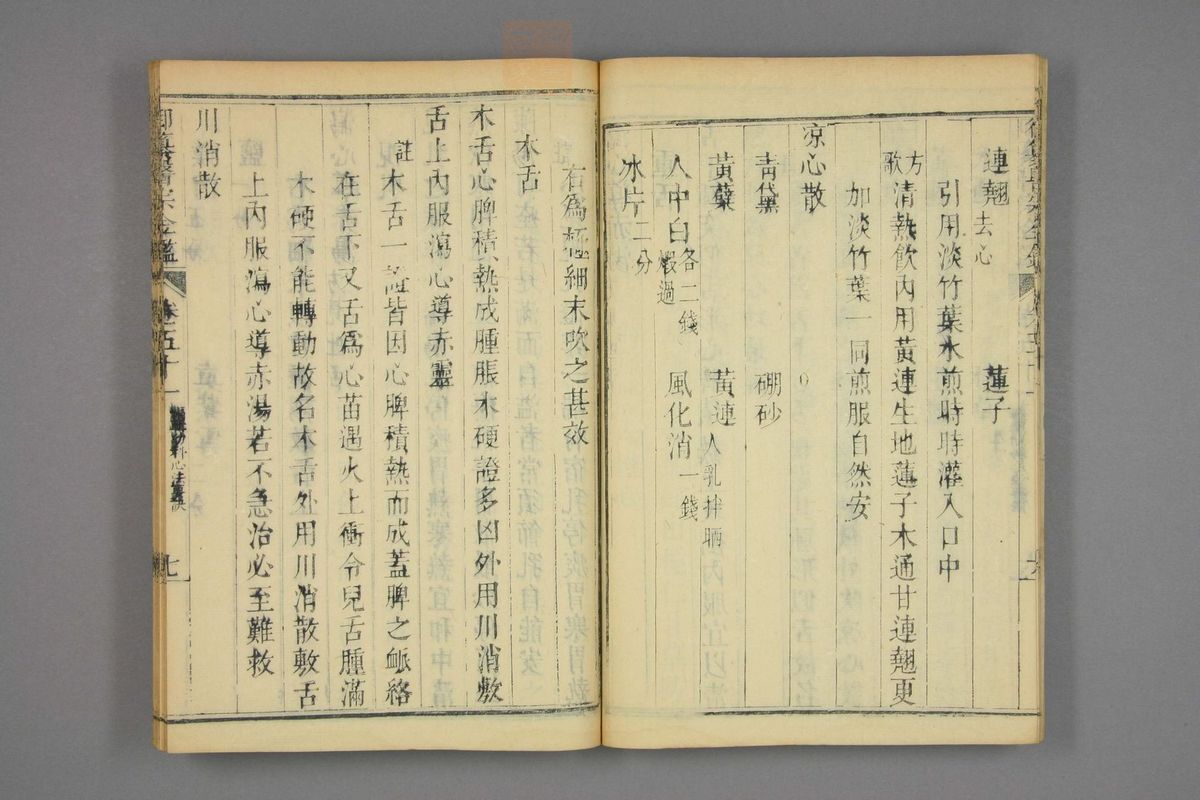 連翹去心 蓮子
引用淡竹葉水煎時時灌入口中
方歌清熱飲內用黃連生地蓮子木通甘連翹更
加淡竹葉一同煎服自然安
凉心散
青黛 硼砂
黃蘗 黃連人乳拌晒
人中白各二錢煅過 風化消一錢
冰片二分
右為極細末吹之甚效
木舌
木舌心脾積熱成腫脹木硬證多凶外用川消敷
舌上內服瀉心導赤靈
註木舌一證皆因心脾積熱而成蓋脾之脈絡
在舌下又舌為心苗遇火上衝令兒舌腫滿
木硬不能轉動故名木舌外用川消散敷舌
上內服瀉心導赤湯若不急治必至難救
川消散
御纂醫宗金鑑 卷五十一 心法要訣 七